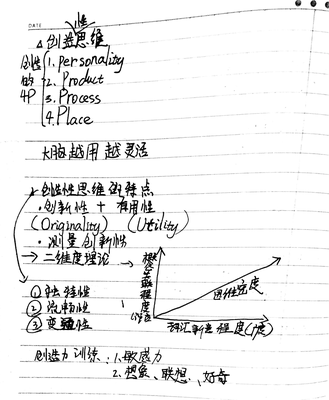 DATE
△创造性思维
创性的4P
1. Personality
2. Product
3. Process
4. Place
大脑越用越灵活
创造性思维的特点
·创新性 + 有用性
(Originality) (Utility)
·测量创新性
→ 二维度理论 →
①独特性
②流畅性
③变通性
思维宽度
词汇新造程度(度)
创造力训练: 1.敏感力
2.想象、联想、好奇